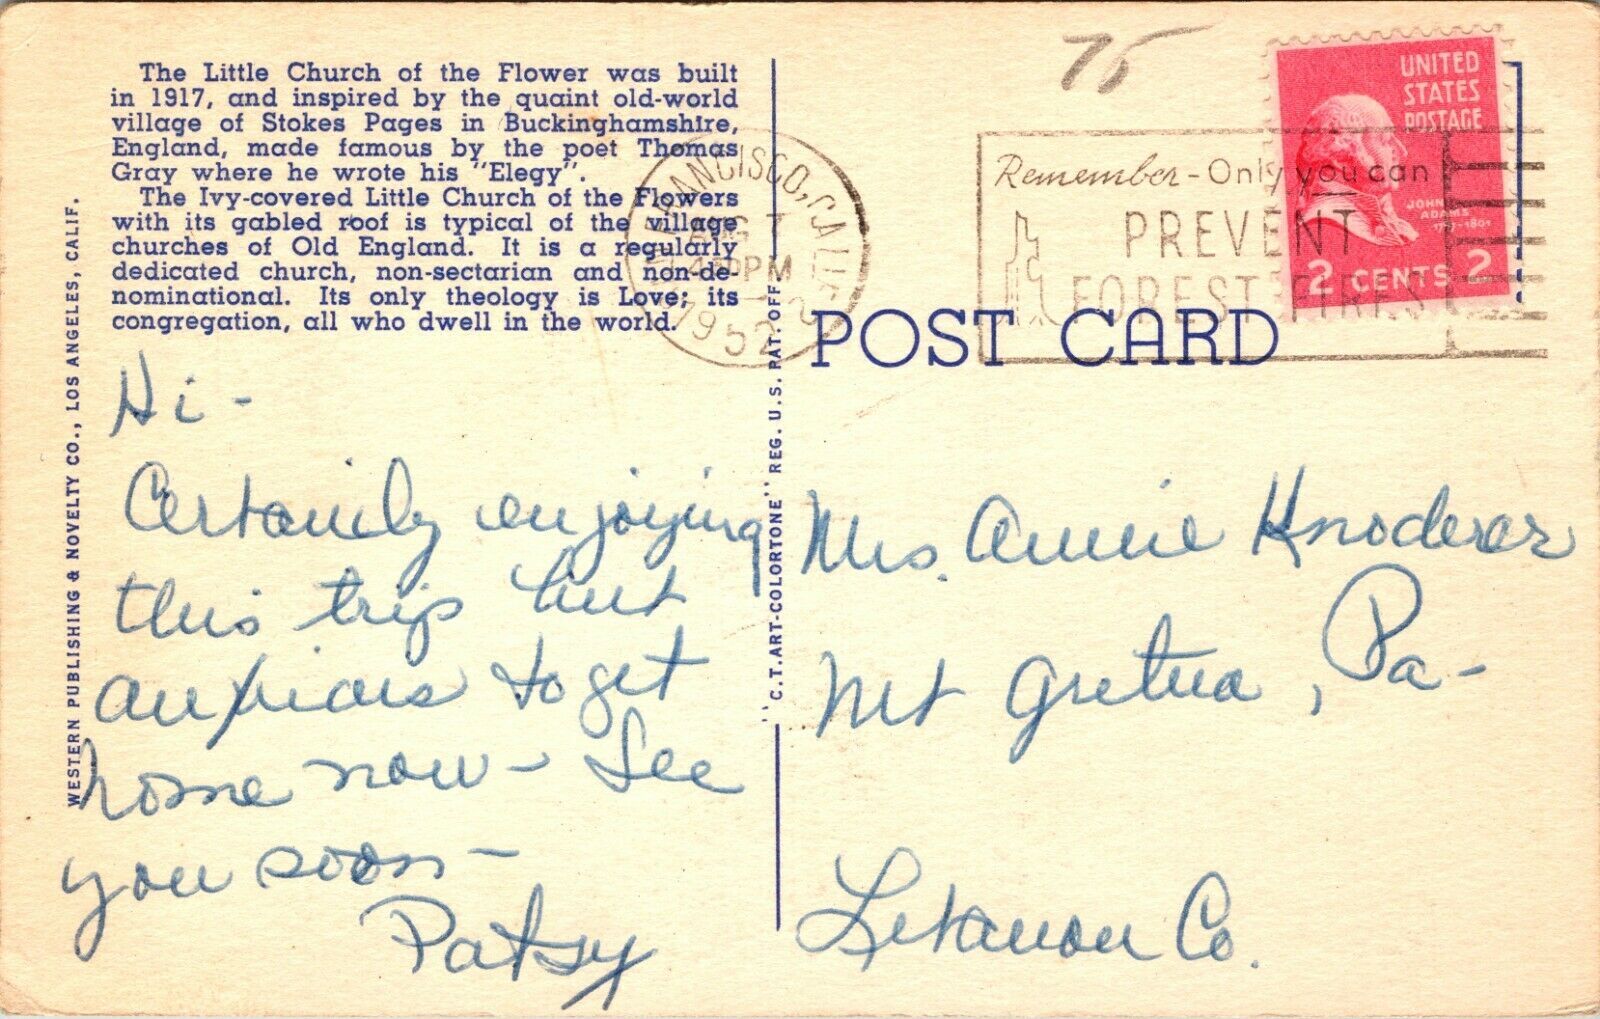 The Little Church of the Flower was built
in 1917, and inspired by the quaint old-world
village of Stokes Pages in Buckinghamshire,
England, made famous by the poet Thomas
Gray where he wrote his "Elegy".
The Ivy-covered Little Church of the Flowers
with its gabled roof is typical of the village
churches of Old England. It is a regularly
dedicated church, non-sectarian and non-de-
nominational. Its only theology is Love; its
congregation, all who dwell in the world.
WESTERN PUBLISHING & NOVELTY CO., LOS ANGELES, CALIF.
Hi -
Certainly enjoying
this trip but
anxious to get
home now - See
you soon -
Patsy
"C.T. ART-COLORTONE" REG. U.S. PAT. OFF.
FRANCISCO, CALIF.
AUG 7
PM
1952
75
Remember - Only you can
PREVENT
FOREST FIRES
UNITED
STATES
POSTAGE
JOHN
ADAMS
1797-1801
2 CENTS 2
POST CARD
Mrs. Annie Knoderer
Mt Gretna, Pa -
Lebanon Co.